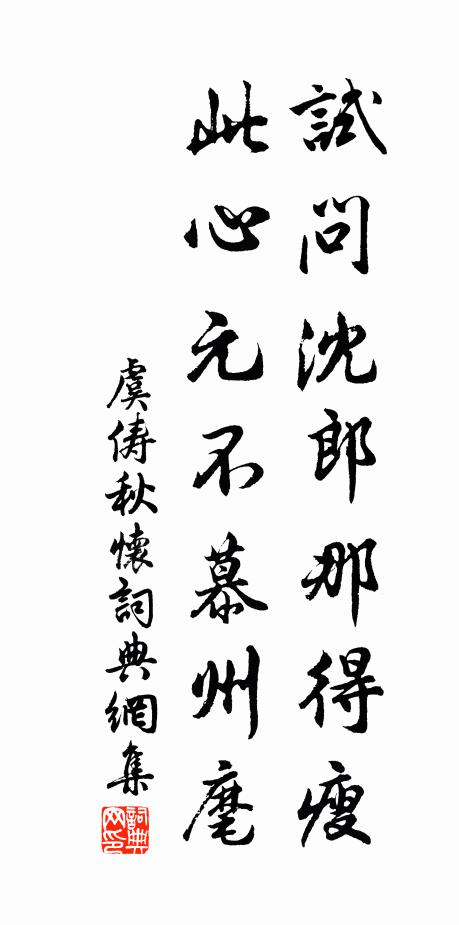 試問沈郎那得瘦
此心元不慕州麾
虞儔秋懷詞典網集
詞典網印